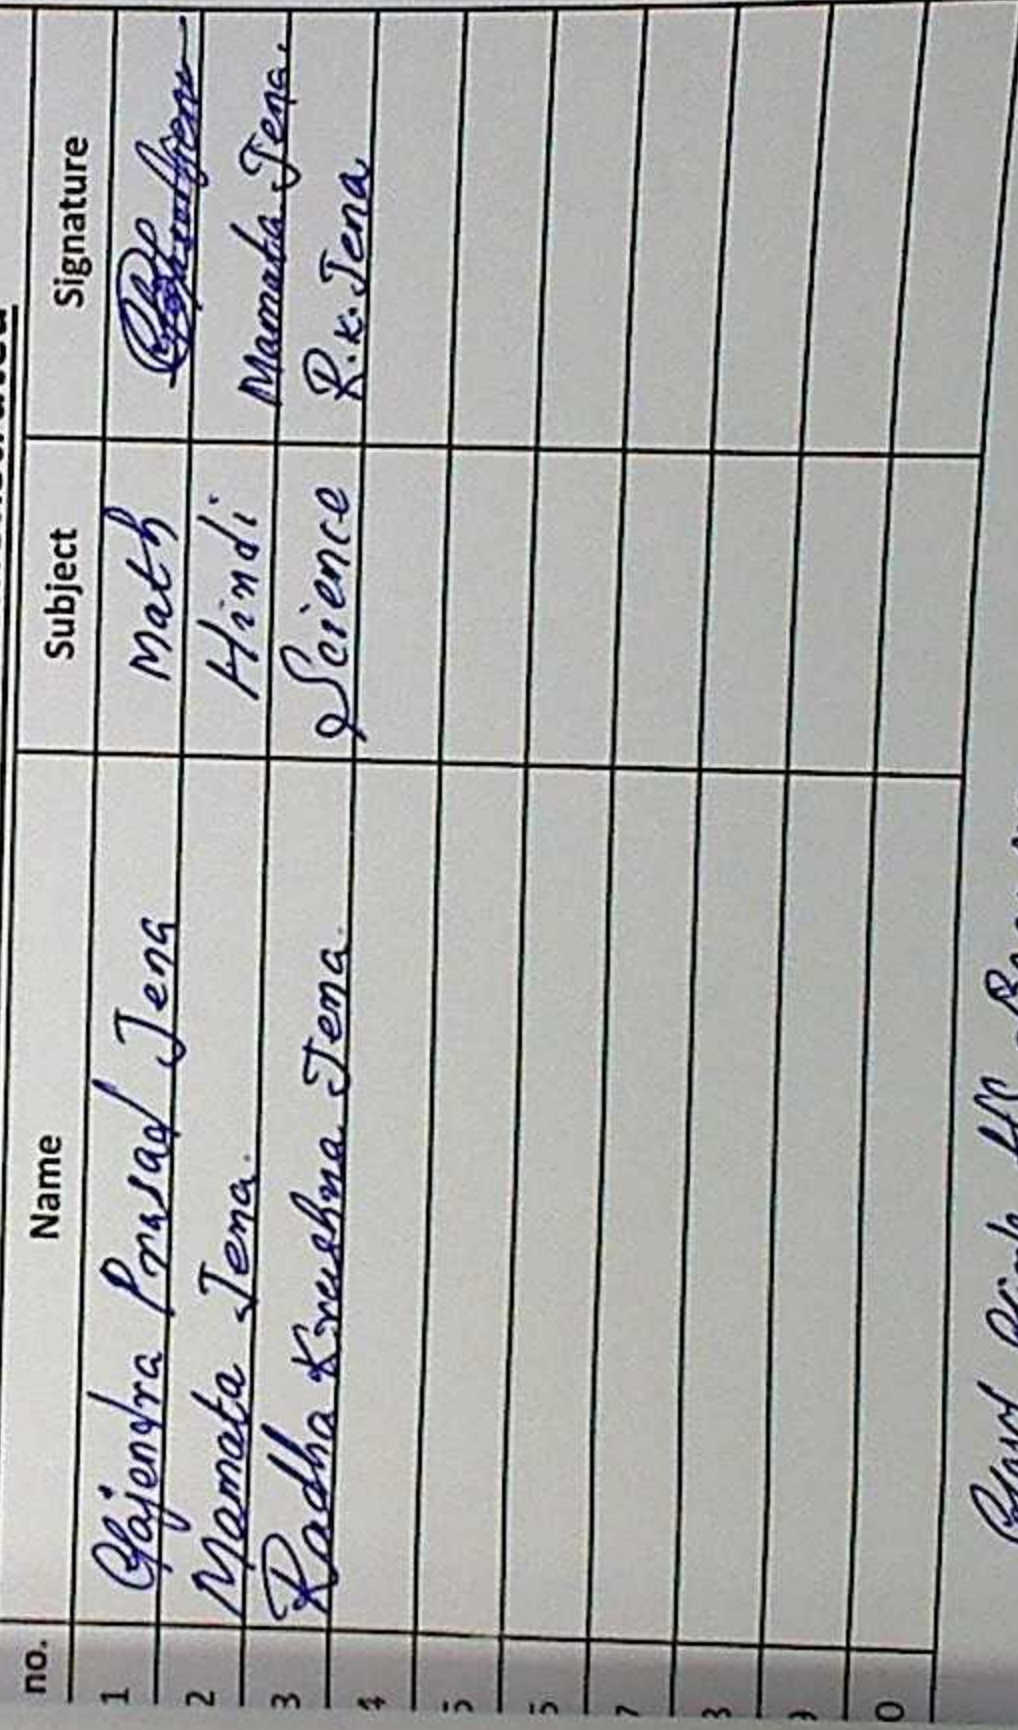 no. Name Subject Signature
1 Gajendra Prasad Jena Math
2 Mamata Jena. Hindi Mamata Jena.
3 Radha Krushna Jena. Science R.K. Jena
4
5
6
7
8
9
0
Govt.